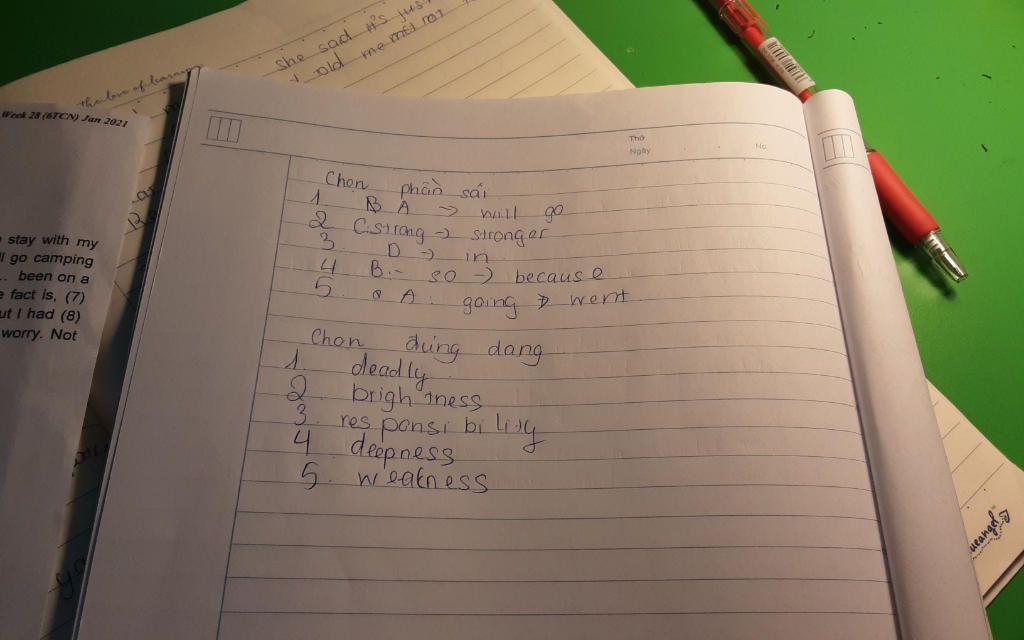 she sad it's just
old me mét rồi
the love of learning
Week 28 (6TCN) Jan 2021
stay with my
go camping
.. been on a
e fact is, (7)
ut I had (8)
worry. Not
Thứ
Ngày
No.
Chọn phần sai
1. B A → will go
2 C.strong → stronger
3. D → in
4 B.- so → because
5. A. going → went
Chọn đúng dạng
1. deadly
2. brightness
3. responsibility
4 deepness
5. weakness
ueangel